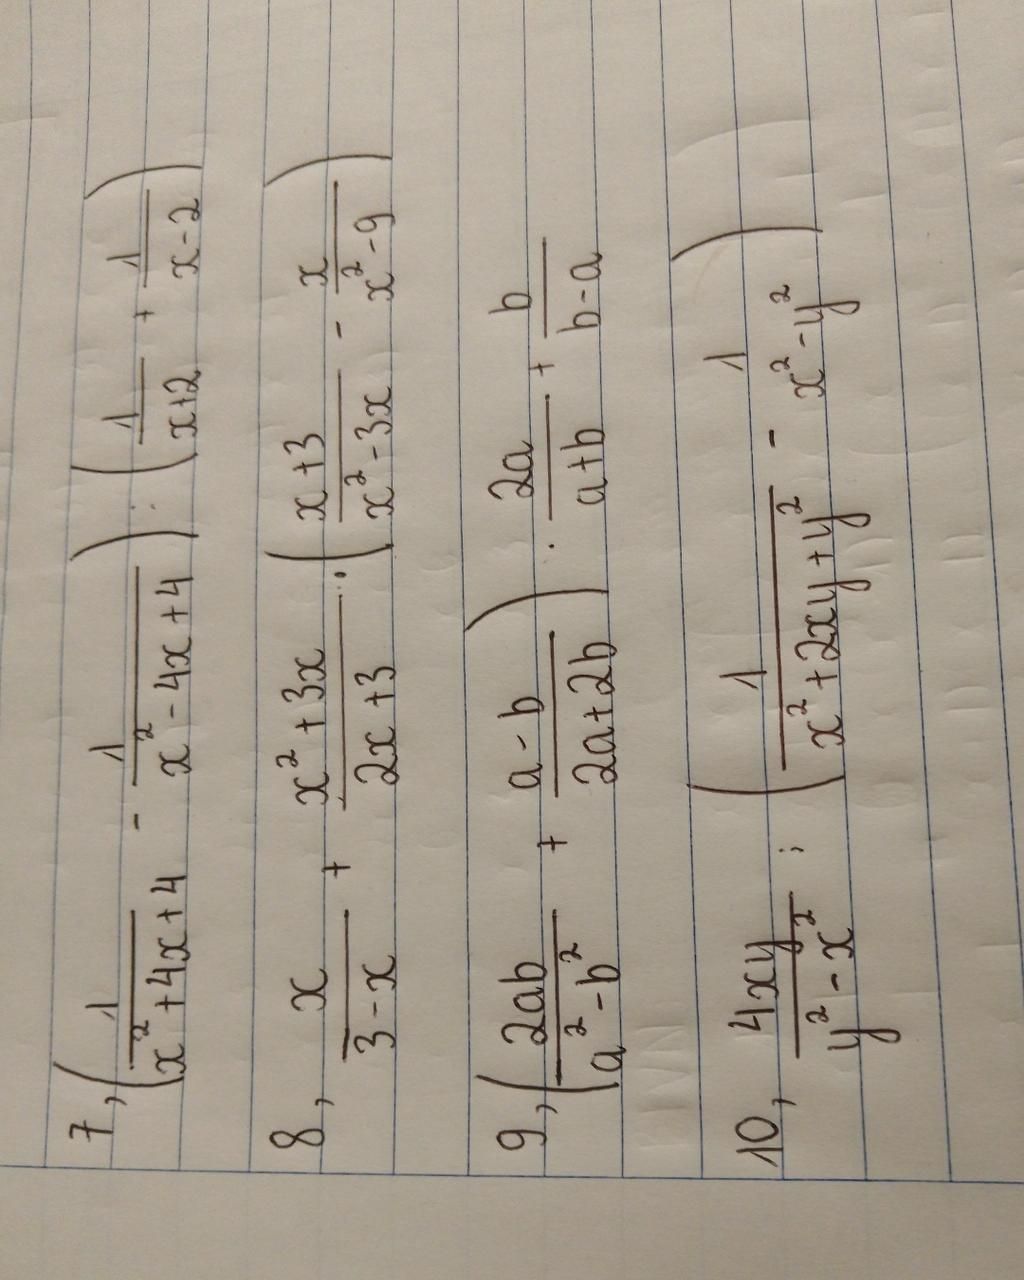 7, (1/(x²+4x+4) - 1/(x²-4x+4)) : (1/(x+2) + 1/(x-2))
8, x/(3-x) + (x²+3x)/(2x+3) : ((x+3)/(x²-3x) - x/(x²-9))
9, (2ab/(a²-b²) + (a-b)/(2a+2b)) · 2a/(a+b) + b/(b-a)
10, 4xy/(y²-x²) : (1/(x²+2xy+y²) - 1/(x²-y²))